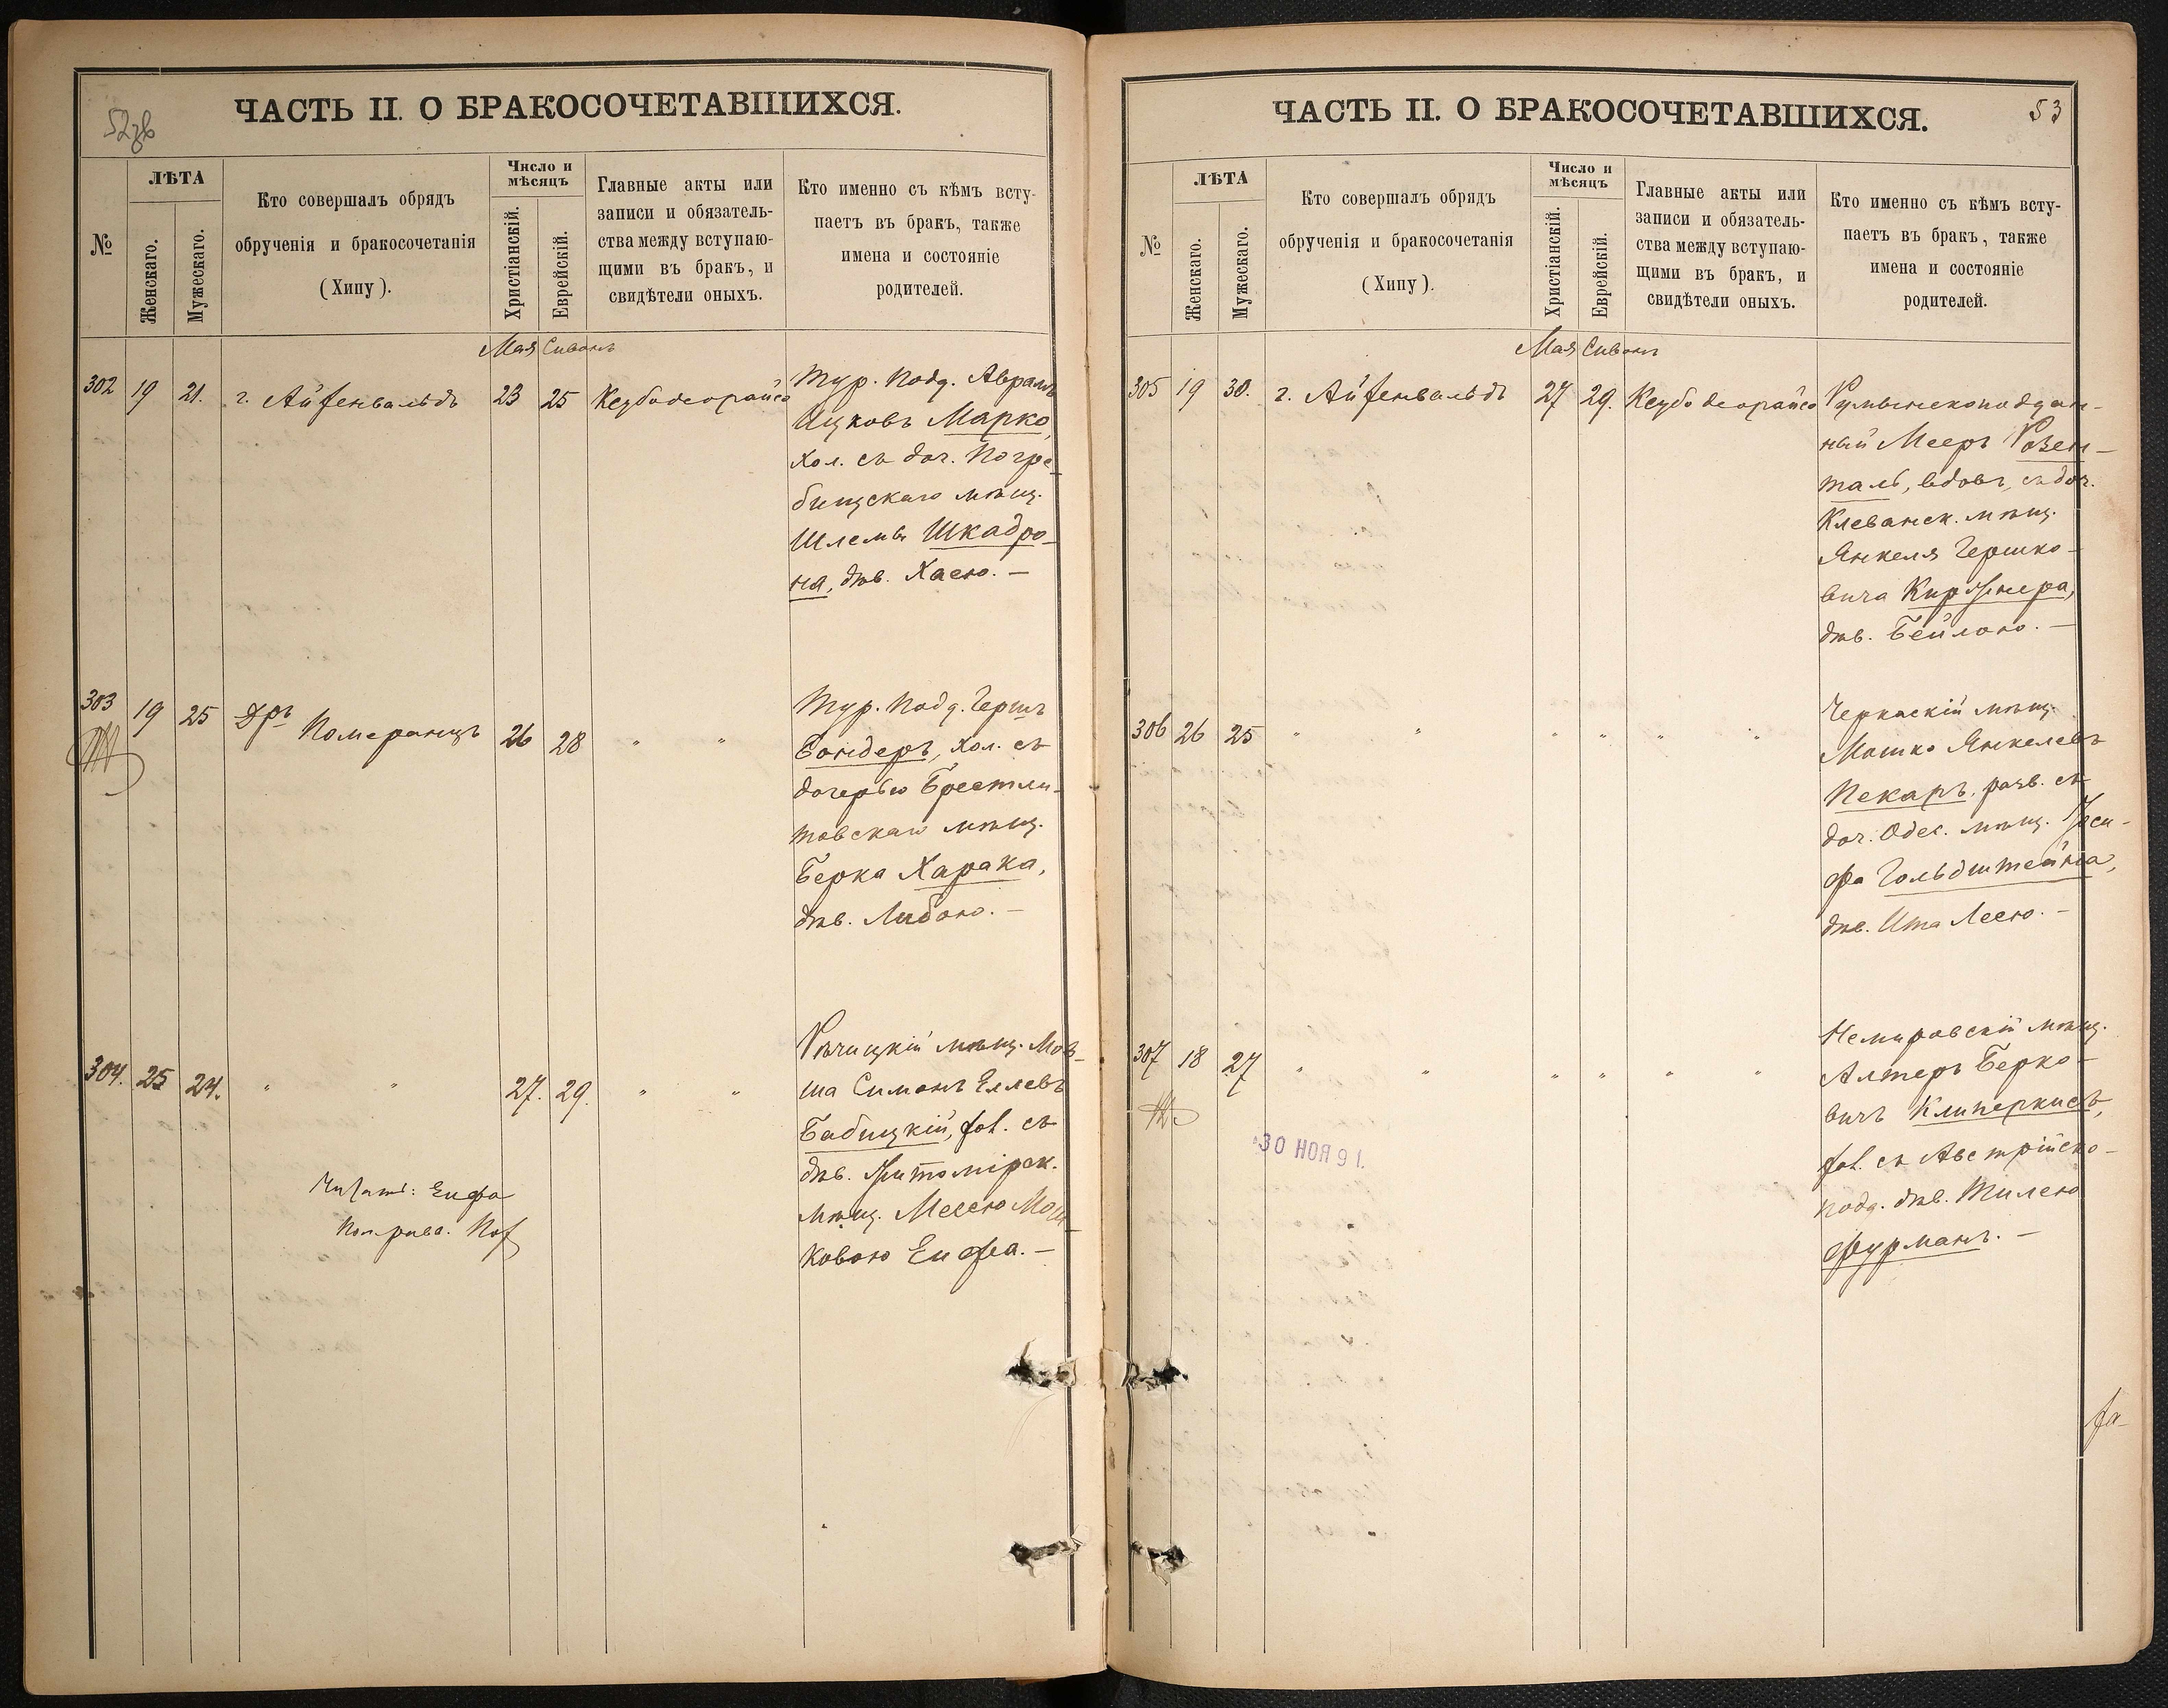 52об
ЧАСТЬ II. О БРАКОСОЧЕТАВШИХСЯ.
№
ЛѢТА
Женскаго.
Мужескаго.
Кто совершалъ обрядъ
обрученія и бракосочетанія
(Хипу).
Число и
мѣсяцъ
Христіанскій.
Еврейскій.
Главные акты или
записи и обязатель-
ства между вступаю-
щими въ бракъ, и
свидѣтели оныхъ.
Кто именно съ кѣмъ всту-
паетъ въ бракъ, также
имена и состояніе
родителей.
Мая Сиванъ
302 19 21. г. Айзенвальдъ 23 25 Кеубодеорайсо
Тур. подд. Авраамъ
Ицковъ Марко,
хол. съ доч. Погре-
бищскаго мѣщ.
Шлемы Шкадро-
на, дѣв. Хаею. —
303 19 25 Дръ Померанцъ 26 28 " "
Тур. подд. Гершъ
Бондеръ, хол. съ
дочерью Брестли-
товскаго мѣщ.
Берка Харака,
дѣв. Либою. —
304. 25 24. " " 27. 29. " "
Рѣчицкій мѣщ. Мов-
ша Симонъ Еллевъ
Бабицкій, хол. съ
дѣв. Житомірск.
мѣщ. Месею Мош-
ковою Енфа. —
Читать: Енфа
53
ЧАСТЬ II. О БРАКОСОЧЕТАВШИХСЯ.
№
ЛѢТА
Женскаго.
Мужескаго.
Кто совершалъ обрядъ
обрученія и бракосочетанія
(Хипу).
Число и
мѣсяцъ
Христіанскій.
Еврейскій.
Главные акты или
записи и обязатель-
ства между вступаю-
щими въ бракъ, и
свидѣтели оныхъ.
Кто именно съ кѣмъ всту-
паетъ въ бракъ, также
имена и состояніе
родителей.
Мая Сиванъ
305 19 30. г. Айзенвальдъ 27 29. Кеубодеорайсо
Румынскоподдан-
ный Мееръ Розен-
таль, вдовъ, съ доч.
Клеванск. мѣщ.
Янкеля Гершко-
вича Киржнера,
дѣв. Бейлою. —
306 26 25 " " " " " "
Черкаскій мѣщ.
Мошко Янкелевъ
Пекаръ, разв. съ
доч. Одес. мѣщ. Іоси-
фа Гольдштейна,
дѣв. Ита Леею. —
307 18 27 " " " " " "
Немировскій мѣщ.
Алтеръ Берко-
вичъ Клиперкисъ,
хол. съ Австрійско-
подд. дѣв. Тилею
Фурманъ. —
30 НОЯ 91.